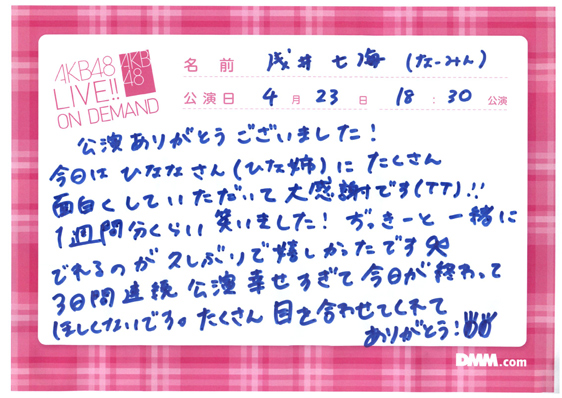 AKB48
LIVE!!
ON DEMAND
AKB
48
名前 浅井七海 (なーみん)
公演日 4月23日 18:30公演
公演ありがとうございました!
今日は ひななさん(ひな姉)に たくさん
面白くしていただいて大感謝です(TT)!!
1週間分くらい 笑いました! ぢっきーと 一緒に
でれるのが 久しぶりで嬉しかったです
3日間 連続 公演 幸せすぎて 今日が 終わって
ほしくないです。たくさん 目を合わせてくれて
ありがとう!
DMM.com